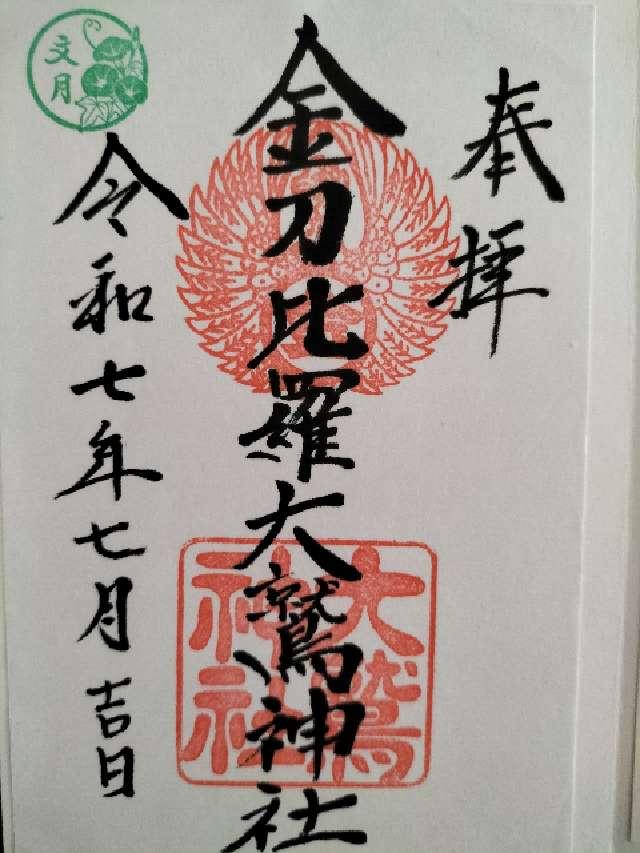 奉拝
金刀比羅大鷲神社
大鷲
神社
令和七年七月吉日
文月